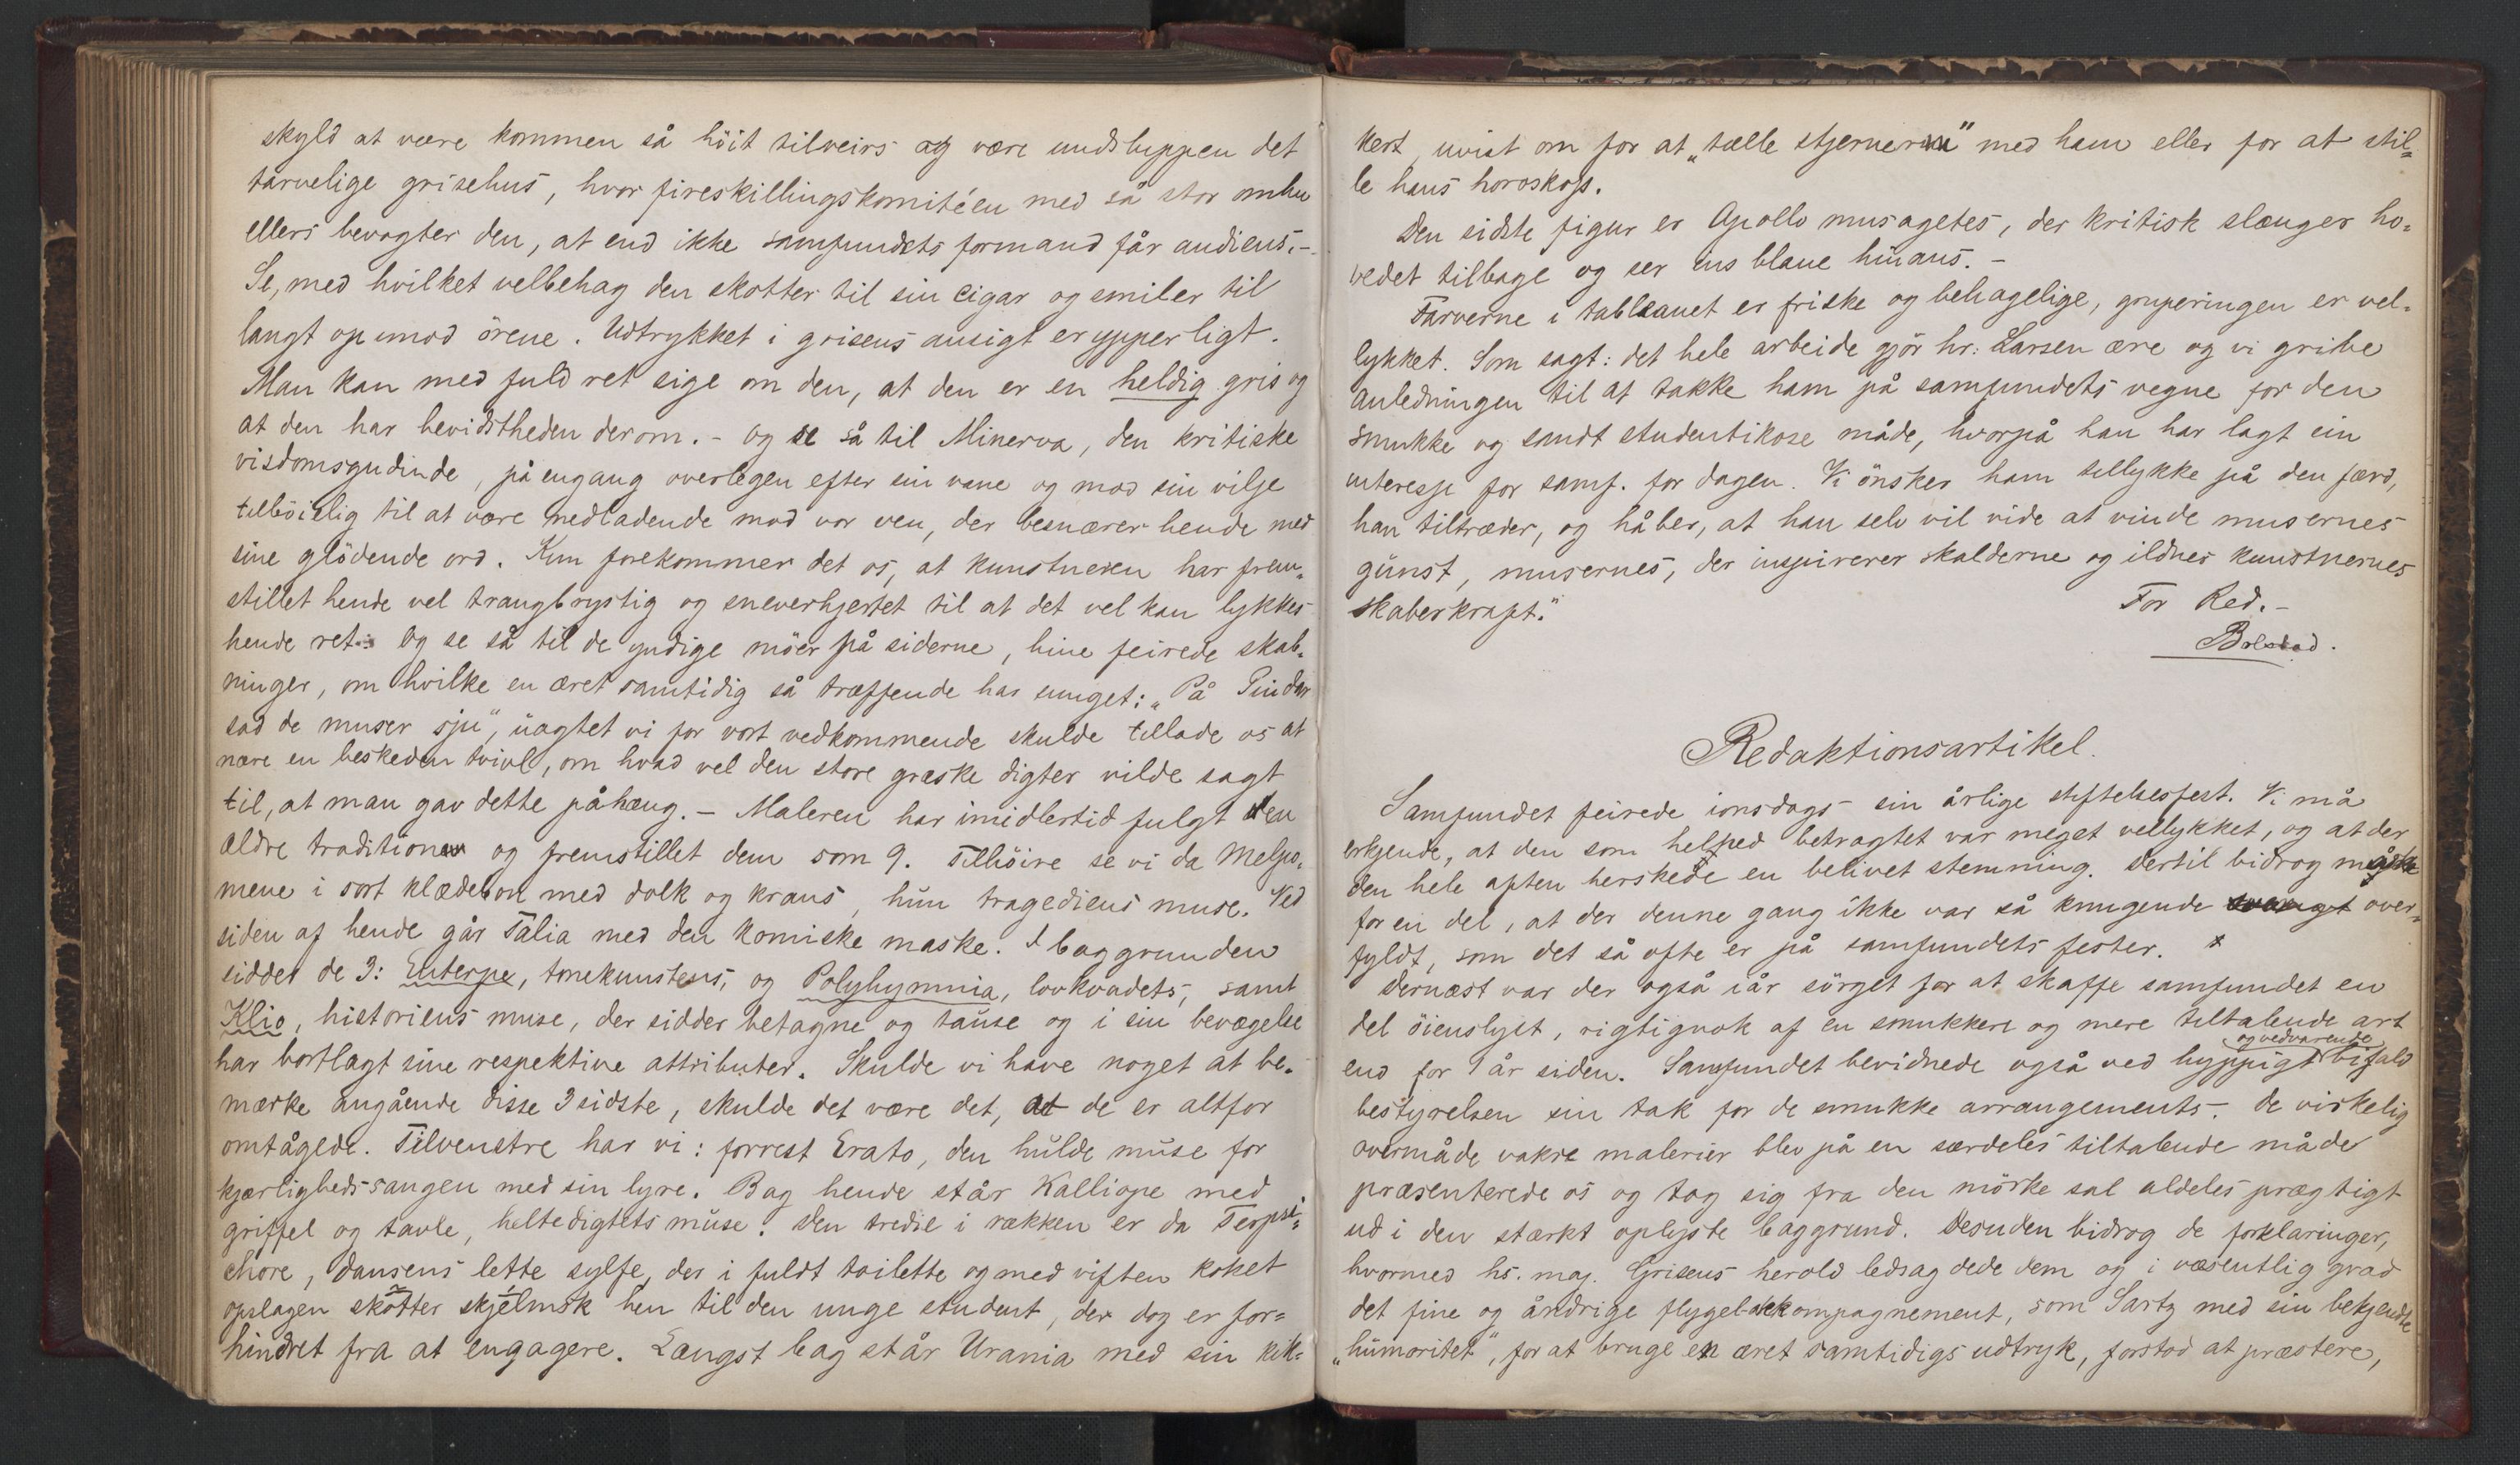 skyld at være kommen så höit tilveirs og være undsluppen det
tarvelige grisehus, hvor fireskillingskomitéen med så stor omhu
ellers bevogter den, at end ikke samfundets formand får audiens.-
Se, med hvilket velbehag den skotter til sin cigar og smiler til
langt op mod örene. Udtrykket i grisens ansigt er ypperligt.
Man kan med fuld ret sige om den, at den er en heldig gris og
at den har bevidstheden derom. - Og se så til Minerva, den kritiske
visdomsgudinde, på engang overlegen efter sin vane og mod sin vilje
tilböielig til at være nedladende mod vor ven, der besnærer hende med
sine glödende ord. Kun forekommer det os, at kunstneren har frem-
stillet hende vel trangbrystig og sneverhjertet til at det vel kan lykkes
hende ret. Og se så til de yndige möer på siderne, hine feirede skab-
ninger, om hvilke en æret samtidig så træffende har sunget: „På Pindar
sad de muser sju", uagtet vi for vort vedkommende skulde tillade os at
nære en beskeden tvivl, om hvad vel den store græske digter vilde sagt
til, at man gav dette påhæng. - Maleren har imidlertid fulgt den
ældre tradition og fremstillet dem som 9. Tilhöire se vi da Melpo-
mene i sort klædebon med dolk og krans, hun tragediens muse. Ved
siden af hende går Talia med den komiske maske. I baggrunden
sidder de 3: Euterpe, tonekunstens, og Polyhymnia, lovkvadets, samt
Klio, historiens muse, der sidder betagne og tause og i sin bevægelse
har bortlagt sine respektive attributer. Skulde vi have noget at be-
mærke angående disse 3 sidste, skulde det være det, at de er altfor
omtågede. Tilvenstre har vi: forrest Erato, den hulde muse for
kjærlighedssangen med sin lyre. Bag hende står Kalliope med
griffel og tavle, heltedigtets muse. Den tredie i rækken er da Terpsi-
chore, dansens lette sylfe, der i fuldt toilette og med viften koket
opslagen skotter skjelmsk hen til den unge student, der dog er for=
hindret fra at engagere. Længst bag står Urania med sin kik=
kert, uvist om for at „tælle stjerner" med ham eller for at stil=
le hans horoskop.
Den sidste figur er Apollo musagetes, der kritisk slænger ho-
vedet tilbage og ser ins blaue hinaus. -
Farverne i tableauet er friske og behagelige, gruperingen er vel-
lykket. Som sagt: det hele arbeide gjör hr: Larsen ære og vi gribe
anledningen til at takke ham på samfundets vegne for den
smukke og sandt studentikose måde, hvorpå han har lagt sin
interesse for samf. for dagen. Vi önsker ham tillykke på den færd,
han tiltræder, og håber, at han selv vil vide at vinde musernes
gunst, musernes, der inspirerer skalderne og ildner kunstnernes
skaberkraft."
For Red. -
Bolstad.
Redaktionsartikel.
Samfundet feirede ionsdags sin årlige stiftelsesfest. Vi må
erkjende, at den som helhed betragtet var meget vellykket, og at der
den hele aften herskede en belivet stemning. Dertil bidrog måske
for en del, at der denne gang ikke var så knugende over-
fyldt, som det så ofte er på samfundets fester.
Dernæst var der også iår sörget for at skaffe samfundet en
del öienslyst, rigtignok af en smukkere og mere tiltalende art
og vedvarende
end for 1 år siden. Samfundet bevidnede også ved hyppigt bifald
bestyrelsen sin tak for de smukke arrangements. De virkelig
overmåde vakre malerier blev på en særdeles tiltalende måde
præsenterede os og tog sig fra den mörke sal aldeles prægtigt
ud i den stærkt oplyste baggrund. Desuden bidrog de forklaringer,
hvormed hs. maj. Grisens herold ledsagdede dem og i væsentlig grad
det fine og åndrige flygel-akkompagnement, som Sartz med sin bekjendte
„humoritet", for at bruge en æret samtidigs udtryk, forstod at præstere,